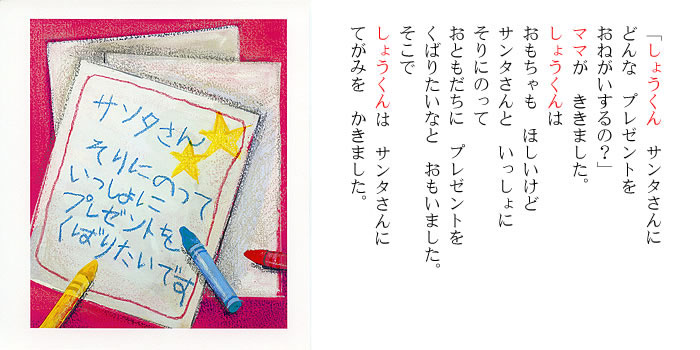 サンタさん
そりにのって
いっしょに
プレゼントを
くばりたいです
「しょうくん　サンタさんに
どんな　プレゼントを
おねがいするの？」
ママが　ききました。
しょうくんは
おもちゃも　ほしいけど
サンタさんと　いっしょに
そりにのって
おともだちに　プレゼントを
くばりたいなと　おもいました。
そこで
しょうくんは　サンタさんに
てがみを　かきました。